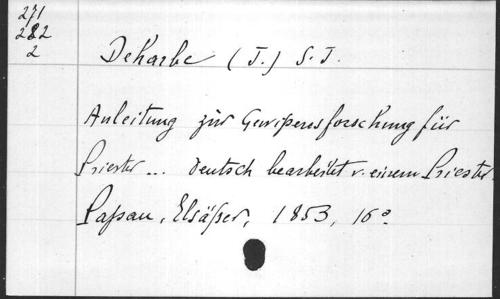 271
282
2
Deharbe (J.) S. J.
Anleitung zür Gewissensforschung für
Priester ... deutsch bearbeitet v. einem Priester.
Paßau, Elsäßer, 1853, 16º